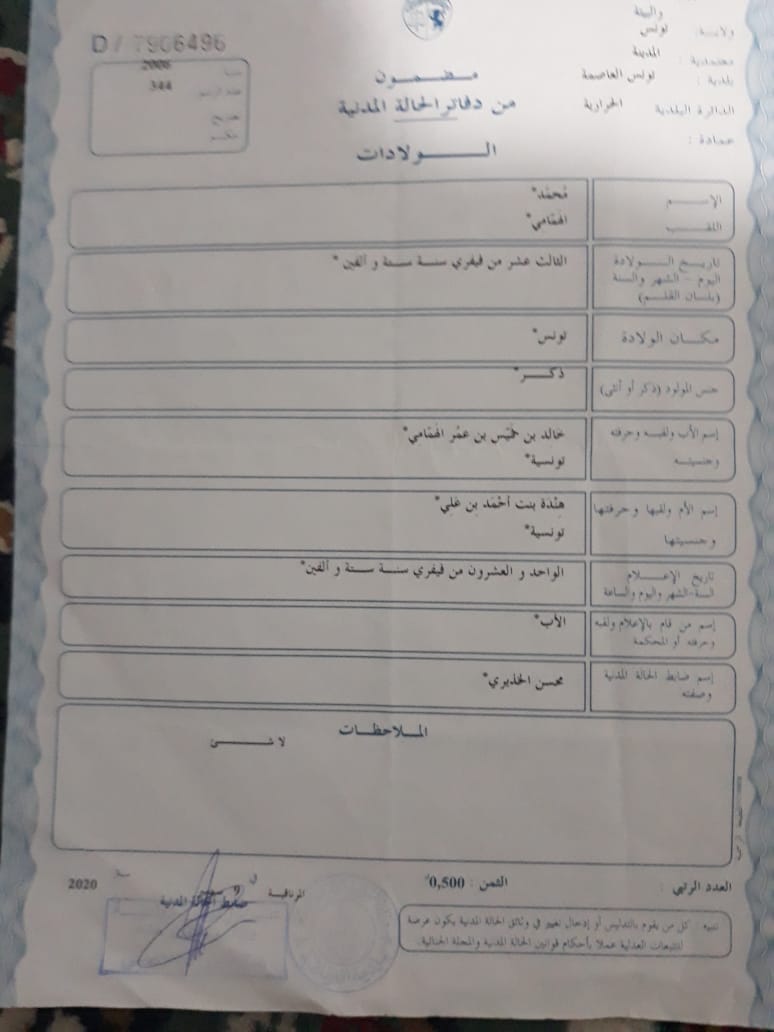 والبيئة
ولاية: تونس
معتمدية: المدينة
بلدية: تونس العاصمة
الدائرة البلدية الحرايرية
عمادة:
D/ 7906496
سنة 2006
عدد الرسم 344
مضمون
من دفاتر الحالة المدنية
الولادات
الإسم مُحمّد*
اللقب الهمّامي*
تاريخ الولادة الثالث عشر من فيفري سنة ستة و ألفين *
اليوم - الشهر والسنة
(بلسان القلم)
مكان الولادة تونس*
جنس المولود (ذكر أو أنثى) ذكر*
إسم الأب ولقبه وحرفته خالد بن خميّس بن عمُر الهمّامي*
وجنسيته تونسية*
إسم الأم ولقبها وحرفتها هِنْدَة بنت أحْمَد بن عَلي*
وجنسيتها تونسية*
تاريخ الإعلام الواحد و العشرون من فيفري سنة ستة و ألفين*
السنة-الشهر واليوم والساعة
إسم من قام بالإعلام ولقبه الأب*
وحرفته أو المحكمة
إسم ضابط الحالة المدنية محسن الخذيري*
وصفته
الملاحظات
لا شئ
العدد الرتبي : الثمن : 0,500
المرناقية في 9 سنة 2020
ضابط الحالة المدنية
تنبيه : كل من يقوم بالتدليس أو إدخال تغيير في وثائق الحالة المدنية يكون عرضة
لتتبعات العدلية عملا بأحكام قوانين الحالة المدنية والمجلة الجنائية.